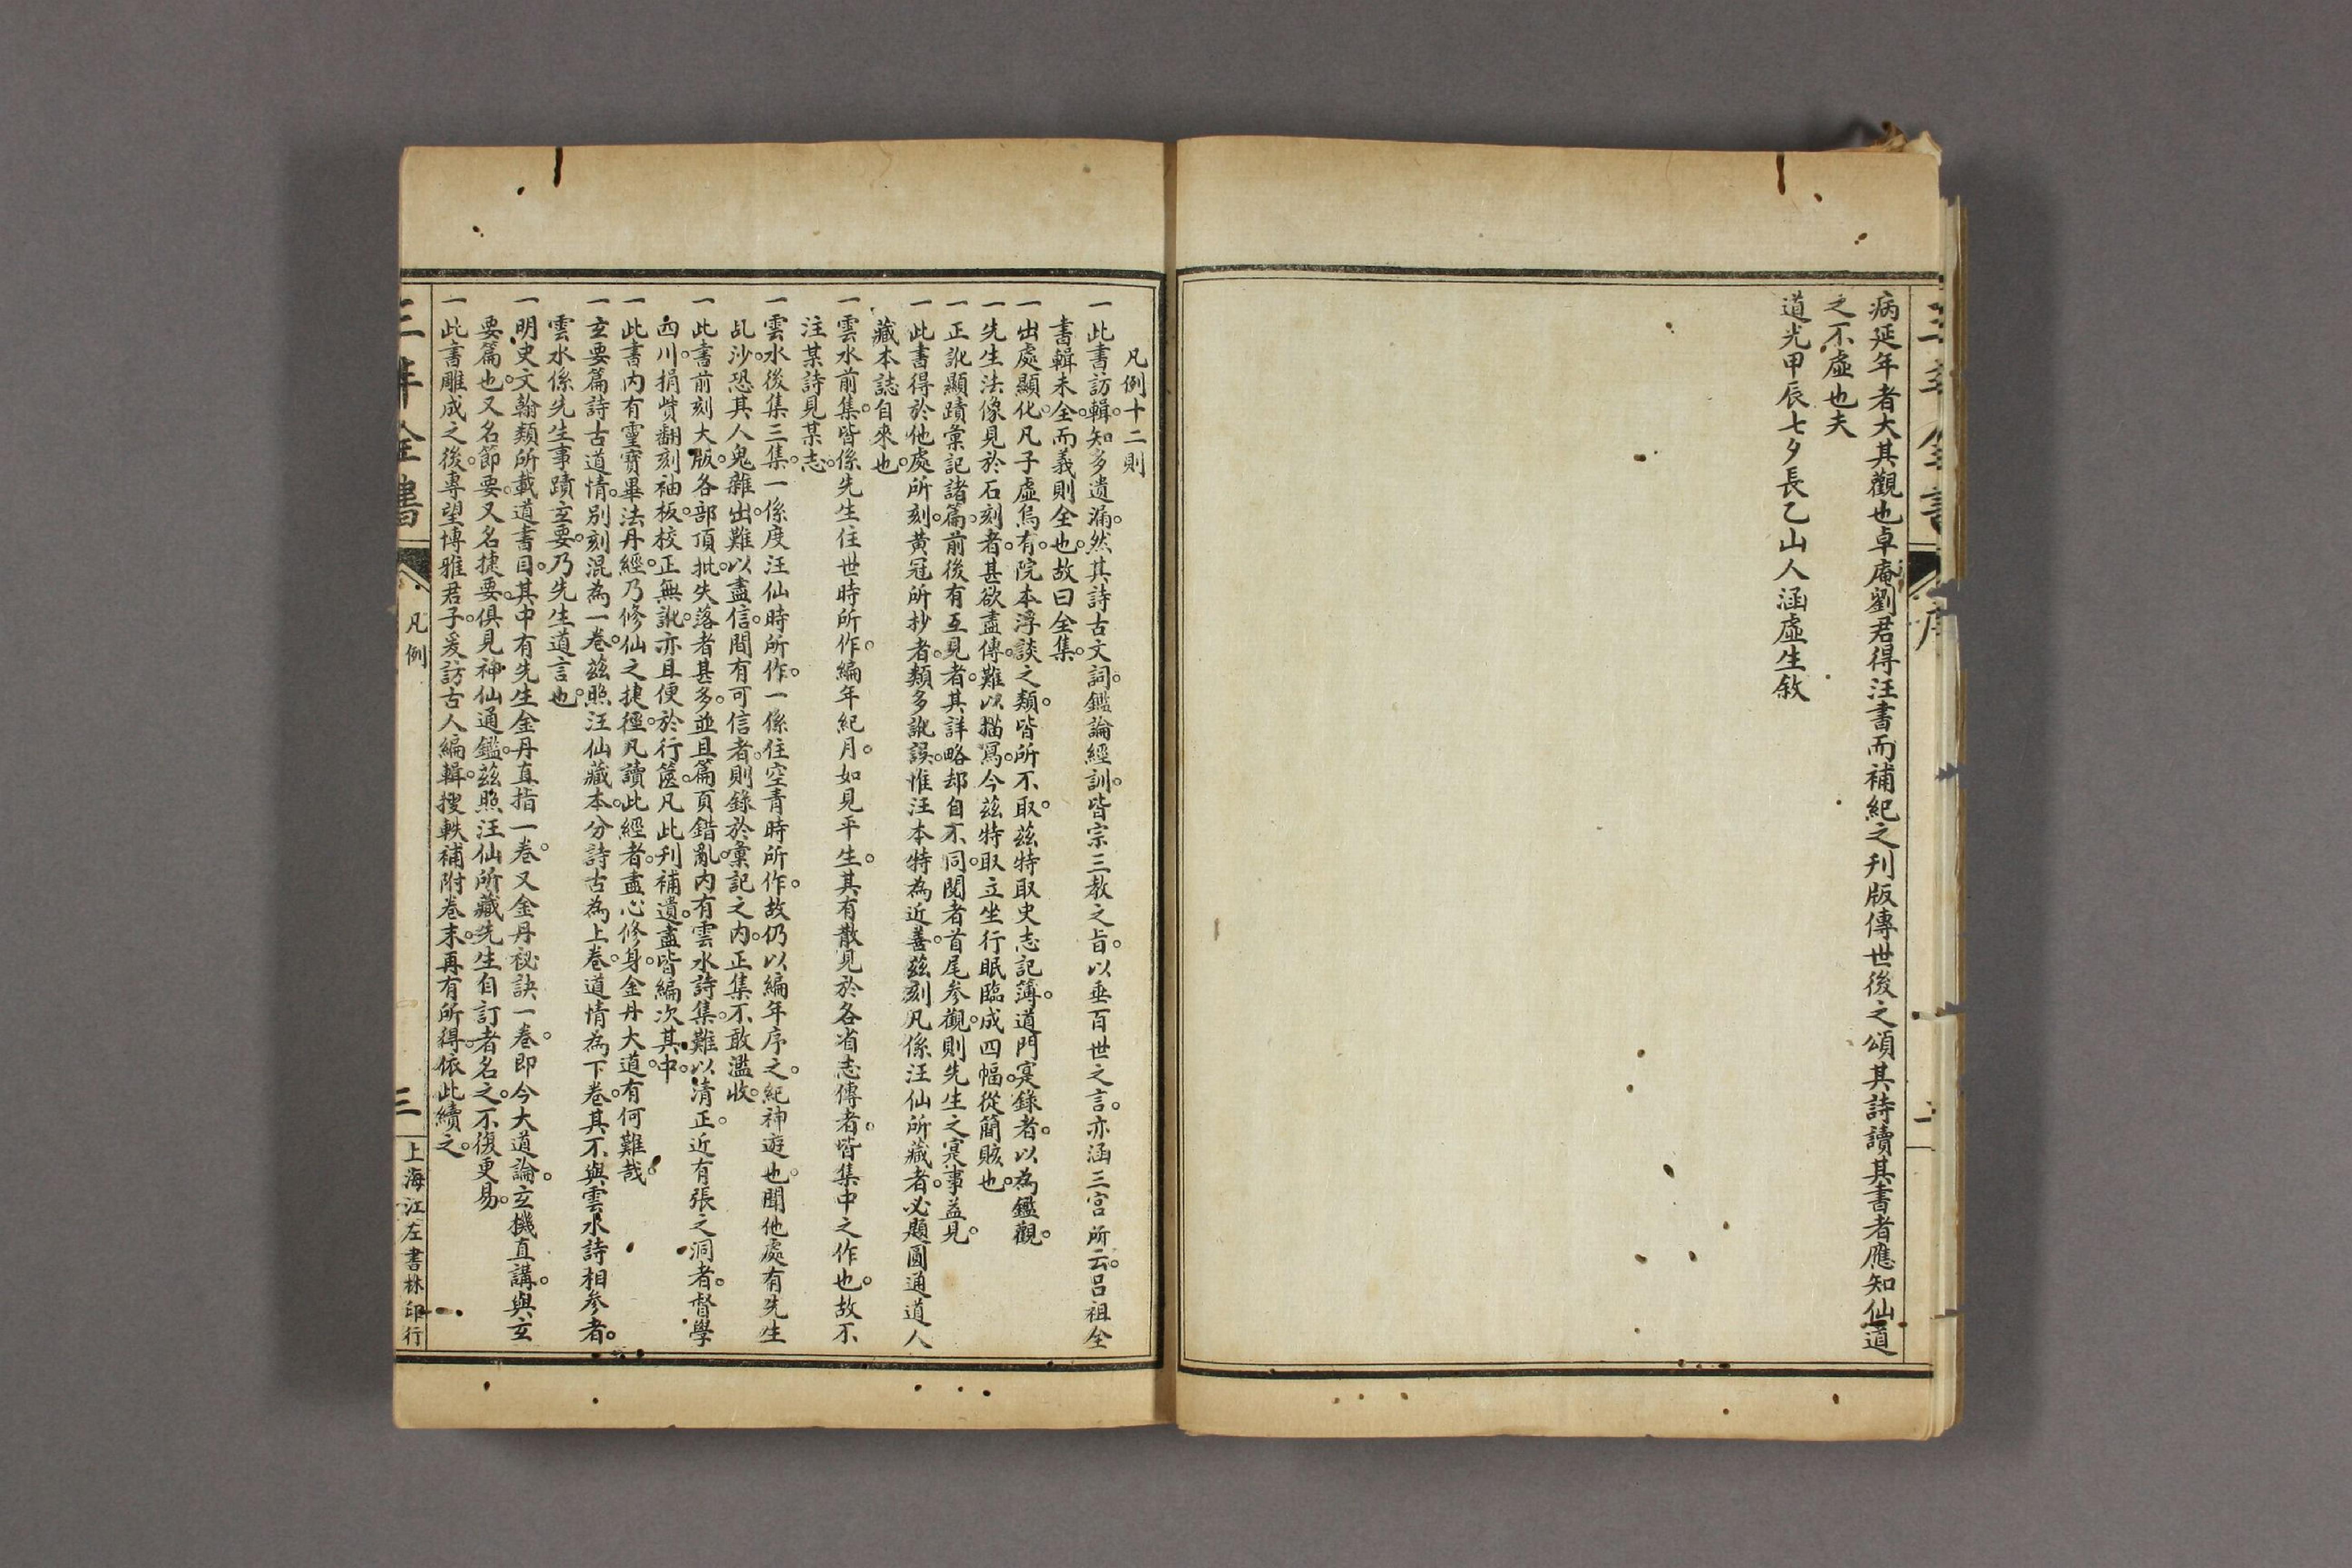 病延年者大其觀也卓庵劉君得汪書而補紀之刊版傳世後之頌其詩讀其書者應知仙道
之不虛也夫
道光甲辰七夕長乙山人涵虛生敘
凡例十二則
一此書訪輯。知多遺漏。然其詩古文詞。鑑論經訓。皆宗三教之旨。以垂百世之言。亦涵三宮所云。呂祖全
書輯未全。而義則全也。故曰全集。
一出處顯化。凡子虛烏有。院本浮談之類。皆所不取。茲特取史志記簿。道門寔錄者。以為鑑觀。
一先生法像見於石刻者。甚欲盡傳。難以描寫。今茲特取立坐行眠臨成四幅。從簡賅也。
一正訛顯蹟彙記諸篇。前後有互見者。其詳略却自不同。閱者首尾参觀。則先生之寔事益見。
一此書得於他處所刻。黄冠所抄者。類多訛誤。惟汪本特為近善。茲刻凡係汪仙所藏者。必題圓通道人
藏本誌自來也。
一雲水前集。皆係先生住世時所作。編年紀月。如見平生。其有散見於各省志傳者。皆集中之作也。故不
注某詩見某志。
一雲水後集三集。一係度汪仙時所作。一係住空青時所作。故仍以編年序之。紀神遊也。聞他處有先生
乩沙。恐其人鬼雜出。難以盡信。間有可信者。則錄於彙記之内。正集不敢濫收。
一此書前刻大版。各部頂批。失落者甚多。並且篇頁錯亂。内有雲水詩集。難以清正。近有張之洞者。督學
四川。捐貲翻刻袖板。校正無訛。亦且便於行篋。凡此刊補遺。盡皆編次其中。
一此書内有靈寶畢法丹經。乃修仙之捷徑。凡讀此經者。盡心修身。金丹大道。有何難哉。
一玄要篇詩古道情。別刻混為一卷。茲照汪仙藏本。分詩古為上卷。道情為下卷。其不與雲水詩相参者。
雲水係先生事蹟。玄要。乃先生道言也。
一明史文翰類所載道書目。其中有先生金丹直指一卷。又金丹秘訣一卷。即今大道論。玄機直講。與玄
要篇也。又名節要。又名捷要。俱見神仙通鑑。茲照汪仙所藏。先生自訂者名之。不復更易。
一此書雕成之後。專望博雅君子。爰訪古人編輯。搜軼補附卷末。再有所得。依此續之。
凡例
三
上海江左書林印行